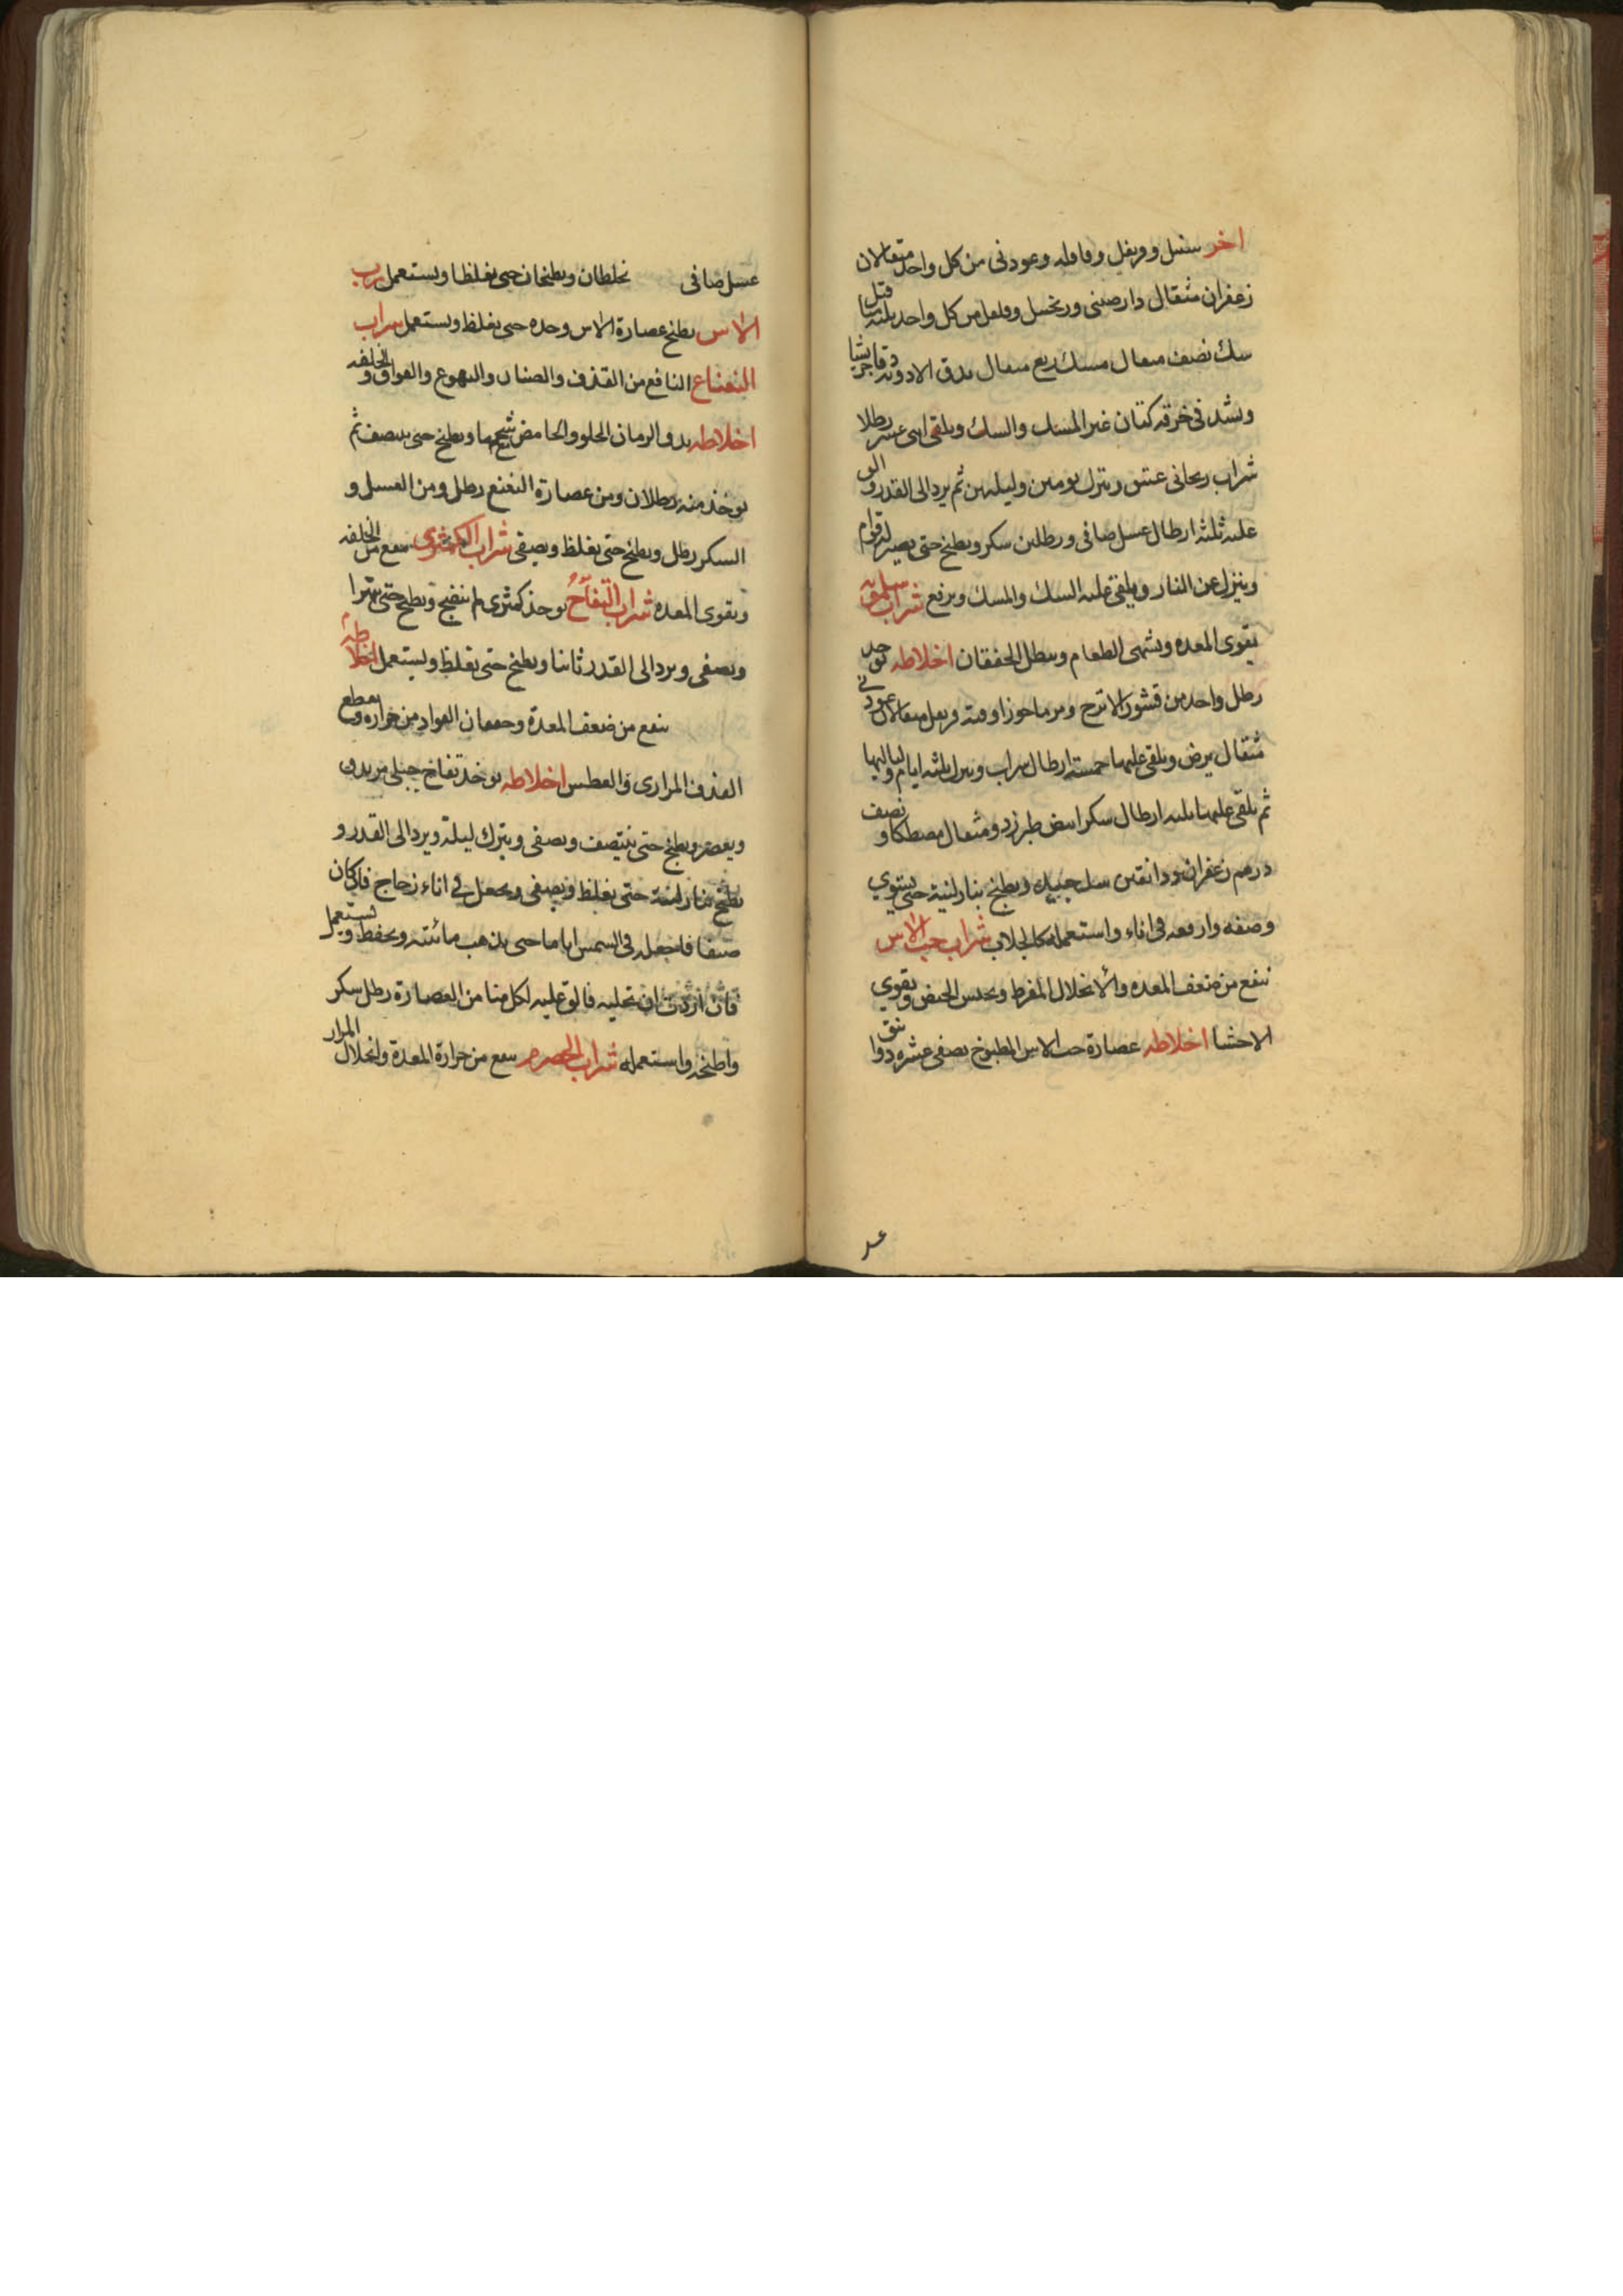 اخر سنبل وقرنفل وقاقله وعود نى من كل واحد مثقالان
زعفران مثقال دارصينى وزنجبيل وفلفل من كل واحد ثلثه مثاقيل
سك نصف مثقال مسك ربع مثقال يدق الادويه دقا جريشا
ويشد فى خرقه كتان غير المسك والسك ويلقى اثنى عشر رطلا
شراب ريحانى عتيق ويترك يومين وليلتين ثم يرد الى القدر والق
عليه ثلثه ارطال عسل صافى ورطلين سكر ويطبخ حتى يصير له قوام
وينزل عن النار ويلقى عليه السك والمسك ويرفع شراب
يقوى المعده ويشهى الطعام ويبطل الخفقان اخلاطه يوخذ
رطل واحد من قشور الاترج ومرماحوز اوقيه قرنفل مثقالان عود نى
مثقال يرض ويلقى عليها خمسة ارطال شراب ويترك ثلثه ايام ولياليها
ثم يلقى عليها ثلثه ارطال سكر ابيض طبرزد ومثقال مصطكا ونصف
درهم زعفران ودانقين سك جيد ويطبخ بنار لينة حتى يستوي
وصفه وارفعه فى اناء واستعمله كالجلاب شراب حب الاس
ينفع من ضعف المعده والانحلال المفرط ويحبس الحيض ويقوي
الاحشا اخلاطه عصارة حب الاس المطبوخ يصفى عشره دوانق
عسل صافى يخلطان ويطبخان حتى يغلظا ويستعمل رب
الاس يطبخ عصارة الاس وحده حتى يغلظ ويستعمل شراب
النعناع النافع من القذف والغثيان والتهوع والفواق والخلفه
اخلاطه يدق الرمان الحلو والحامض بشحمها ويطبخ حتى ينتصف ثم
يوخذ منه رطلان ومن عصارة النعنع رطل ومن العسل و
السكر رطل ويطبخ حتى يغلظ ويصفى شراب الكمثرى ينفع من الخلفه
ويقوى المعده شراب التفاح يوخذ كمثرى لم ينضج ويطبخ حتى يتهرا
ويصفى ويرد الى القدر ثانيا ويطبخ حتى يغلظ ويستعمل اخلاطه
ينفع من ضعف المعدة وخفقان الفواد من حراره ويقطع
القذف المرارى والعطس اخلاطه يوخذ تفاح جبلى مز يدق
ويعصر ويطبخ حتى ينتصف ويصفى ويترك ليلة ويرد الى القدر و
يطبخ بنار لينة حتى يغلظ ويصفى ويجعل فى اناء زجاج فان كان
صيفا فاجعله فى الشمس اياما حتى يذهب مائيته ويحفظ ويستعمل
فان اردت ان تحليه فالق عليه لكل منا من العصارة رطل سكر
واطبخه واستعمله شراب الحصرم ينفع من حرارة المعدة وانحلال المرار